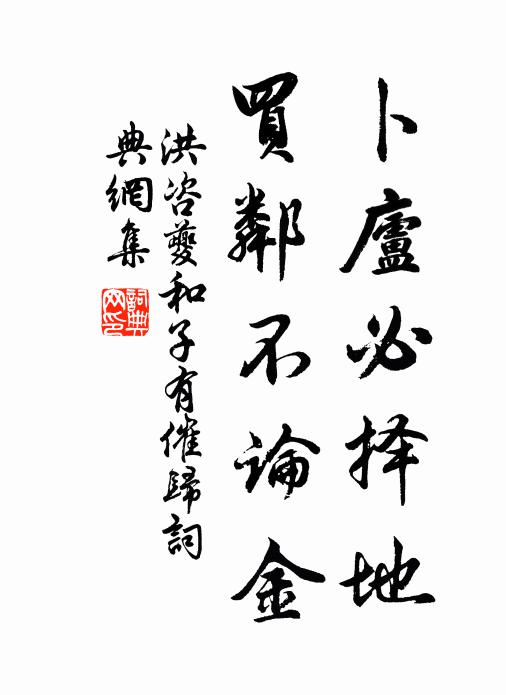 卜廬必择地
買鄰不論金
洪咨夔和子有催歸詞
典網集
詞典网印